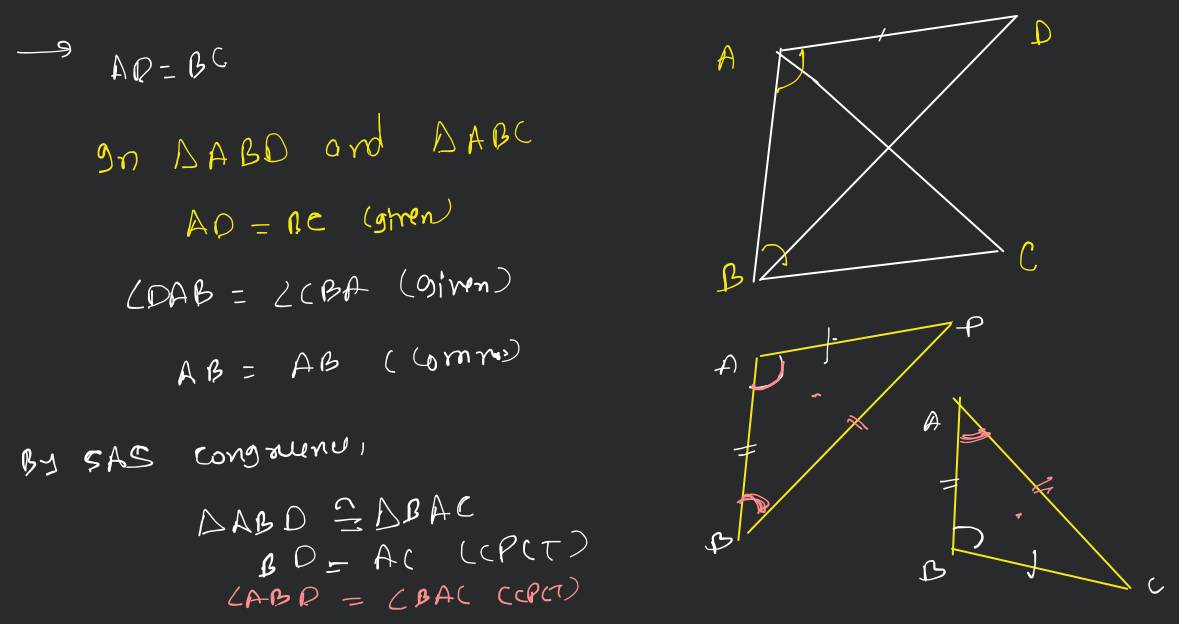 → AD = BC
In ΔABD and ΔABC
AD = BC (given)
∠DAB = ∠CBA (Given)
AB = AB (Common)
By SAS congruence,
ΔABD ≅ ΔBAC
BD = AC (CPCT)
∠ABD = ∠BAC (CPCT)
A
D
B
C
A
P
B
A
B
C